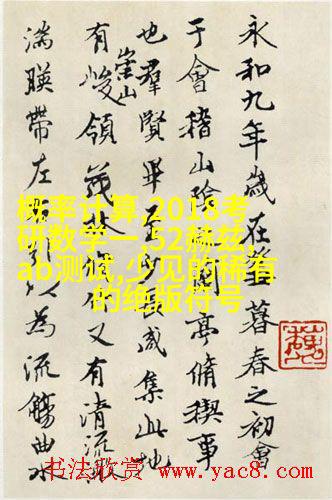 永和九年歲在暮春之初會
于會稽山陰蘭亭脩禊事
也羣賢畢至咸集此地
有崇山峻領茂林又有清流激
湍暎帶左引以為流觴曲水
概率计算,2018考
研数学一,52赫兹,
ab测试,少见的稀有
的绝版符号
书法欣赏 www.yac8.com